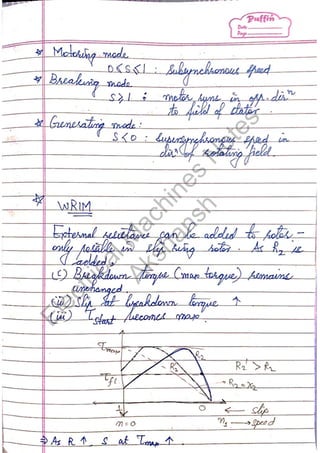 Puffin
Date
Page
* Motoring mode
0<S<1 : Subsynchronous speed
* Breaking mode
S≥1 : motor runs in opp. dirn
to field of stator.
* Generating mode :
S<0 : supersynchronous speed in
dirn of rotating field.
* WRIM
External resistance can be added to rotor -
only possible in slip ring rotor. As R2 is
added.
(i) Breakdown torque (max torque) remains
unchanged.
(ii) Slip at breakdown torque ↑
(iii) Tstart becomes max.
Tmax
Tfl
R2'
R2
R2' > R2
R2 = X2
1
0
← slip
n=0
ns → speed
⇒ As R ↑, S at Tmax ↑.
Machines Notes
Akash